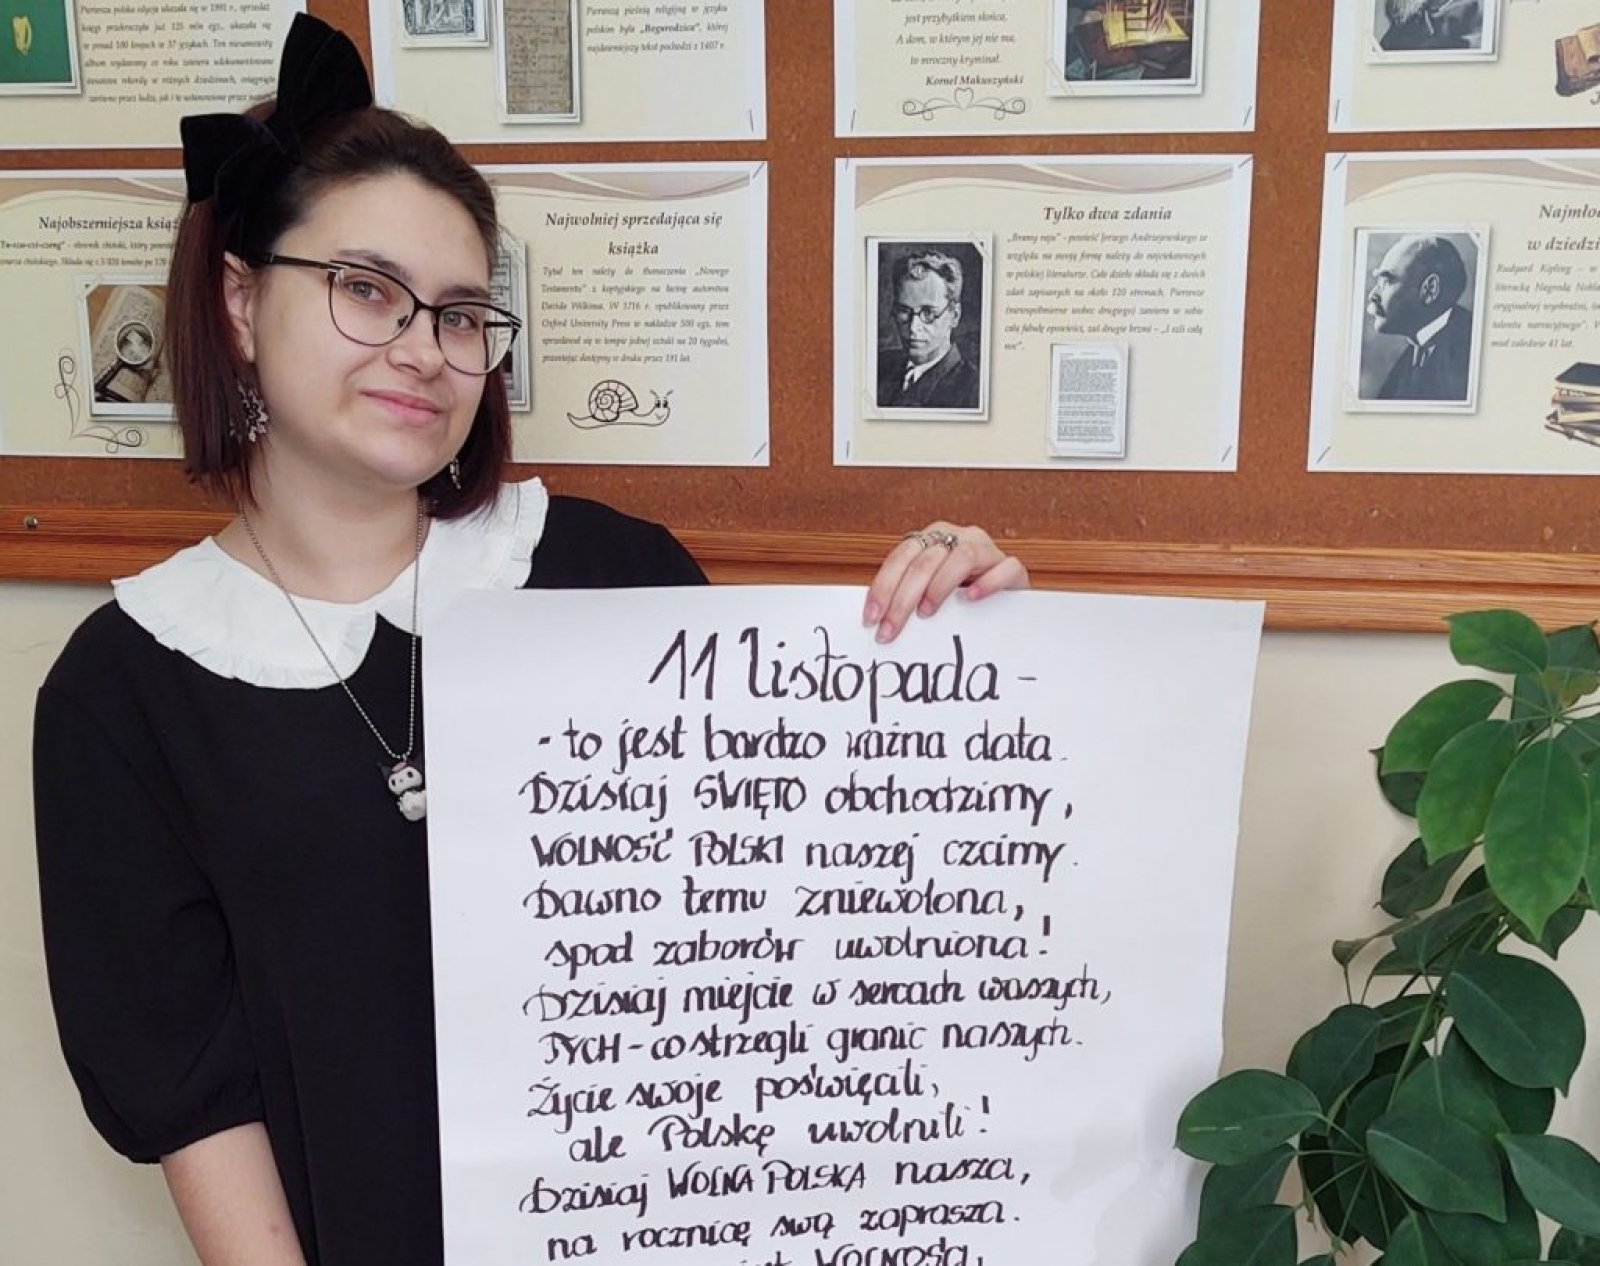 Pierwsza polska edycja ukazała się w 1991 r., sprzedaż
księgi przekroczyła już 125 mln egz., ukazała się
w ponad 100 krajach w 37 językach. Ten niesamowity
album wydawany co roku zawiera udokumentowane
Pierwszą pieśnią religijną w języku
polskim była „Bogurodzica”, której
najdawniejszy tekst pochodzi z 1407 r.
jest przybytkiem słońca,
A dom, w którym jej nie ma,
to mroczny kryminał.
Kornel Makuszyński
Najobszerniejsza książ
Najwolniej sprzedająca się
książka
Tytuł ten należy do tłumaczenia „Nowego
Testamentu” z koptyjskiego na łacinę autorstwa
Davida Wilkinsa. W 1716 r. opublikowany przez
Oxford University Press w nakładzie 500 egz. tom
sprzedawał się w tempie jednej sztuki na 20 tygodni,
pozostając dostępny w druku przez 191 lat.
Tylko dwa zdania
„Bramy raju” - powieść Jerzego Andrzejewskiego ze
względu na swoją formę należy do najciekawszych
w polskiej literaturze. Całe dzieło składa się z dwóch
zdań zapisanych na około 120 stronach. Pierwsze
(niewspółmierne wobec drugiego) zawiera w sobie
całą fabułę opowieści, zaś drugie brzmi – „I szli całą
noc”.
Najmło
w dziedzi
Rudyard Kipling – w
literacką Nagrodę Nobla
oryginalnej wyobraźni,
talentu narracyjnego”. W
miał zaledwie 41 lat.
11 listopada -
- to jest bardzo ważna data.
Dzisiaj ŚWIĘTO obchodzimy,
WOLNOŚĆ POLSKI naszej czcimy.
Dawno temu zniewolona,
spod zaborów uwolniona!
Dzisiaj miejcie w sercach waszych,
TYCH - co strzegli granic naszych.
Życie swoje poświęcili,
ale Polskę uwolnili!
Dzisiaj WOLNA POLSKA nasza,
na rocznicę swą zaprasza.
WOLNOŚCIĄ,